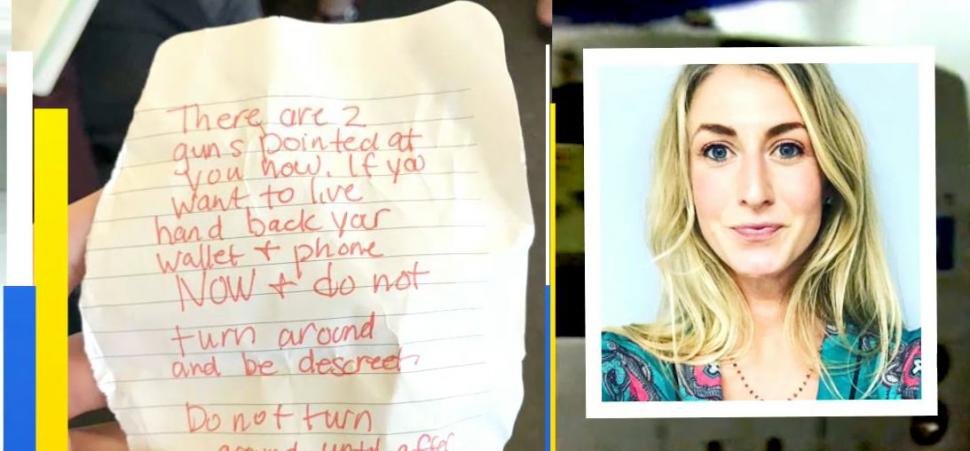 There are 2
guns pointed at
you now. If you
want to live
hand back your
wallet + phone
NOW + do not
turn around
and be descreet
Do not turn
around until after